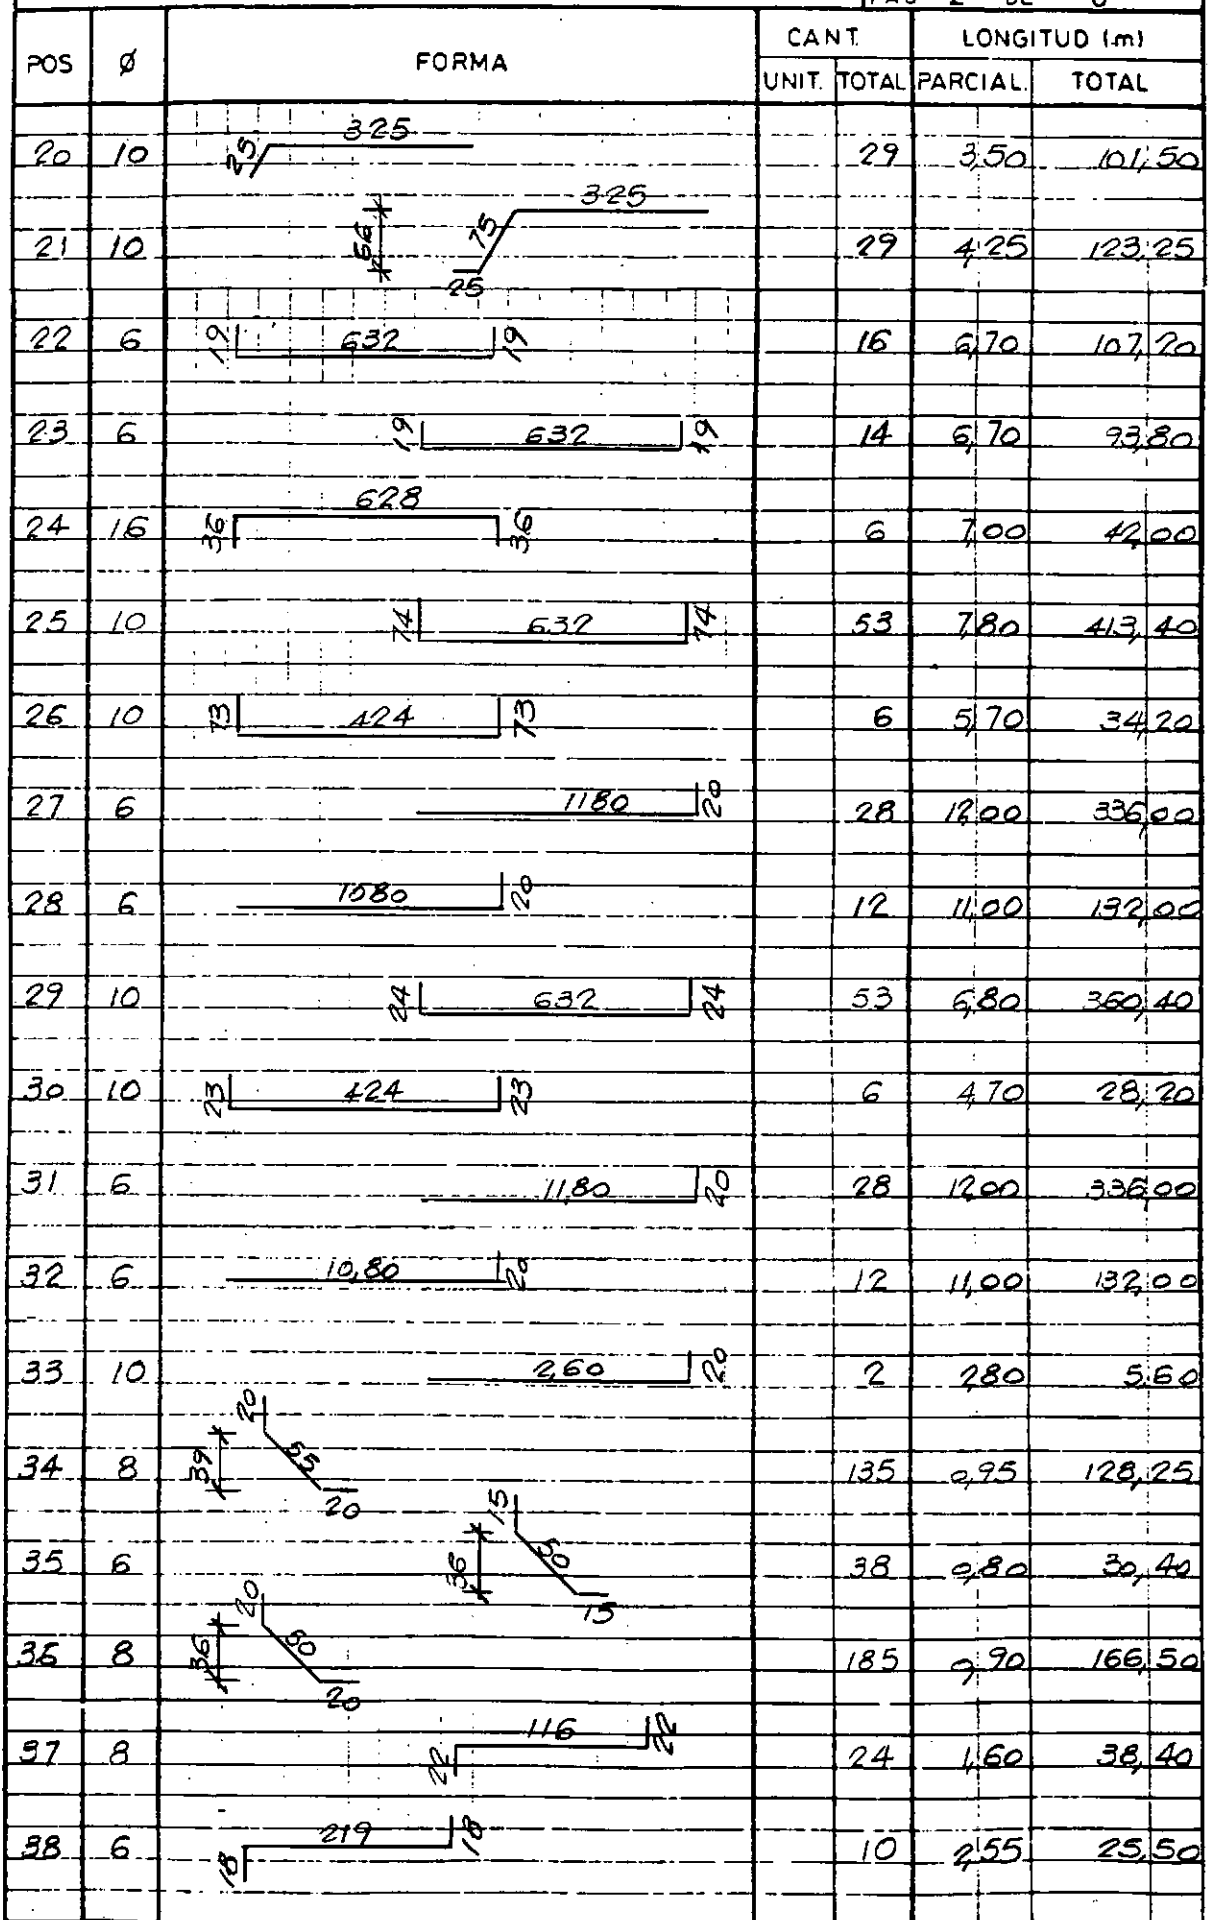 PAG 2 DE
POS Ø FORMA CANT. LONGITUD (m)
UNIT. TOTAL PARCIAL. TOTAL
20 10 25 325 29 3,50 101,50
21 10 56 75 325 25 29 4,25 123,25
22 6 19 632 19 16 6,70 107,20
23 6 19 632 19 14 6,70 93,80
24 16 36 628 36 6 7,00 42,00
25 10 74 632 74 53 7,80 413,40
26 10 73 424 73 6 5,70 34,20
27 6 1180 20 28 12,00 336,00
28 6 1080 20 12 11,00 132,00
29 10 24 632 24 53 6,80 360,40
30 10 23 424 23 6 4,70 28,20
31 6 11,80 20 28 12,00 336,00
32 6 10,80 20 12 11,00 132,00
33 10 2,60 20 2 2,80 5,60
34 8 39 20 55 20 135 0,95 128,25
35 6 36 15 50 15 38 0,80 30,40
36 8 36 20 50 20 185 0,90 166,50
37 8 22 116 22 24 1,60 38,40
38 6 18 219 18 10 2,55 25,50